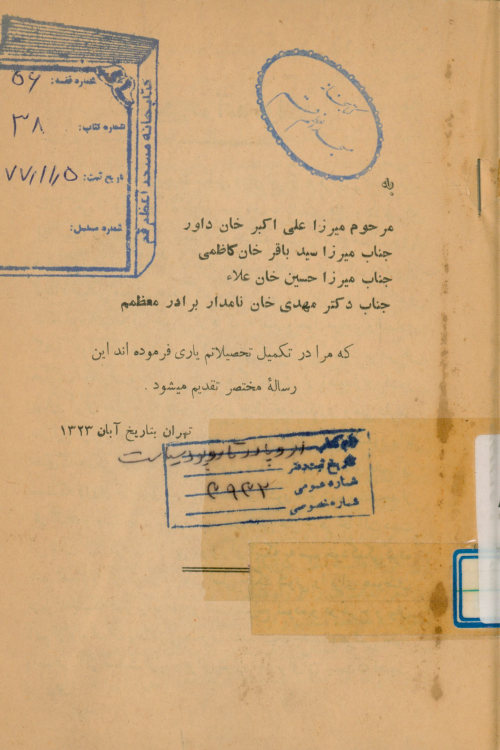 کتابخانه مسجد اعظم قم
شماره قفسه: ۵۶
شماره کتاب: ۳۸
تاریخ ثبت: ۷۷/۱/۵
شماره مسلسل:
به
مرحوم میرزا علی اکبر خان داور
جناب میرزا سید باقر خان کاظمی
جناب میرزا حسین خان علاء
جناب دکتر مهدی خان نامدار برادر معظمم
که مرا در تکمیل تحصیلاتم یاری فرموده اند این
رسالهٔ مختصر تقدیم میشود .
تهران بتاریخ آبان ۱۳۲۳
نام کتاب
تاریخ ثبت دفتر
شماره عمومی ۴۹۴۲
شماره خصوصی